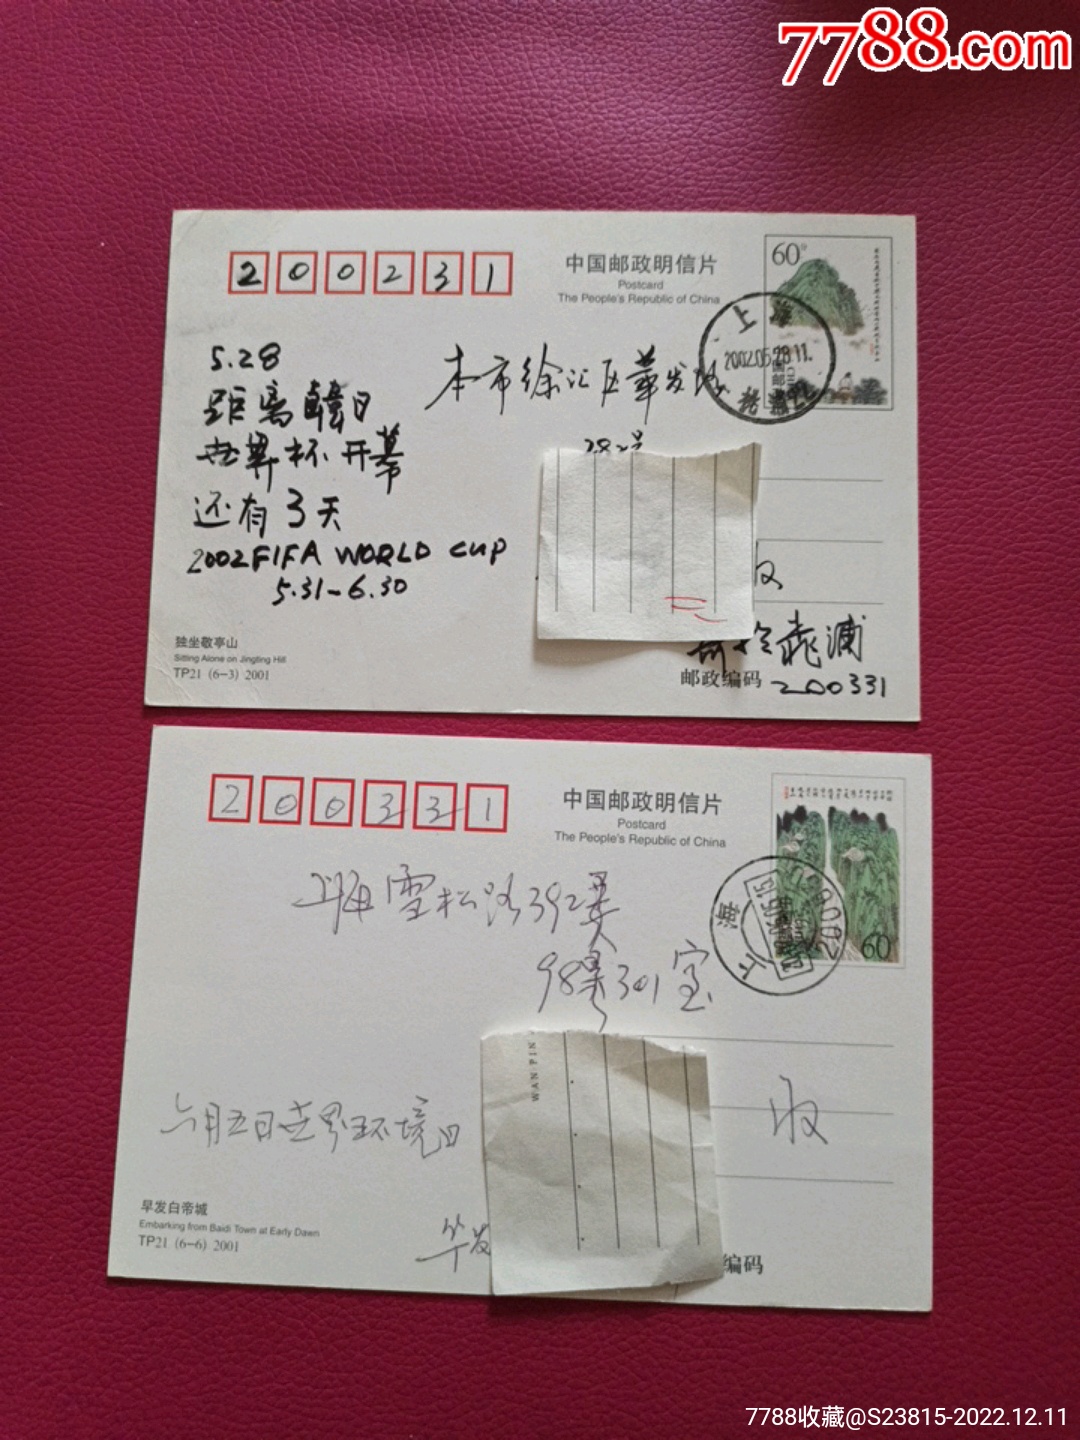 7788.com
200231
中国邮政明信片
Postcard
The People's Republic of China
60
上海
2002.05.28.11
5.28
距离韩日
世界杯开幕
还有3天
2002 FIFA WORLD CUP
5.31-6.30
本市徐汇区华发路
282号
收
桃浦
邮政编码 200331
独坐敬亭山
Sitting Alone on Jingting Hill
TP21 (6-3) 2001
200331
中国邮政明信片
Postcard
The People's Republic of China
60
上海
上海雪松路392弄
98号301室
WAN PIN
收
六月五日世界环境日
华发
编码
早发白帝城
Embarking from Baidi Town at Early Dawn
TP21 (6-6) 2001
7788收藏@S23815-2022.12.11